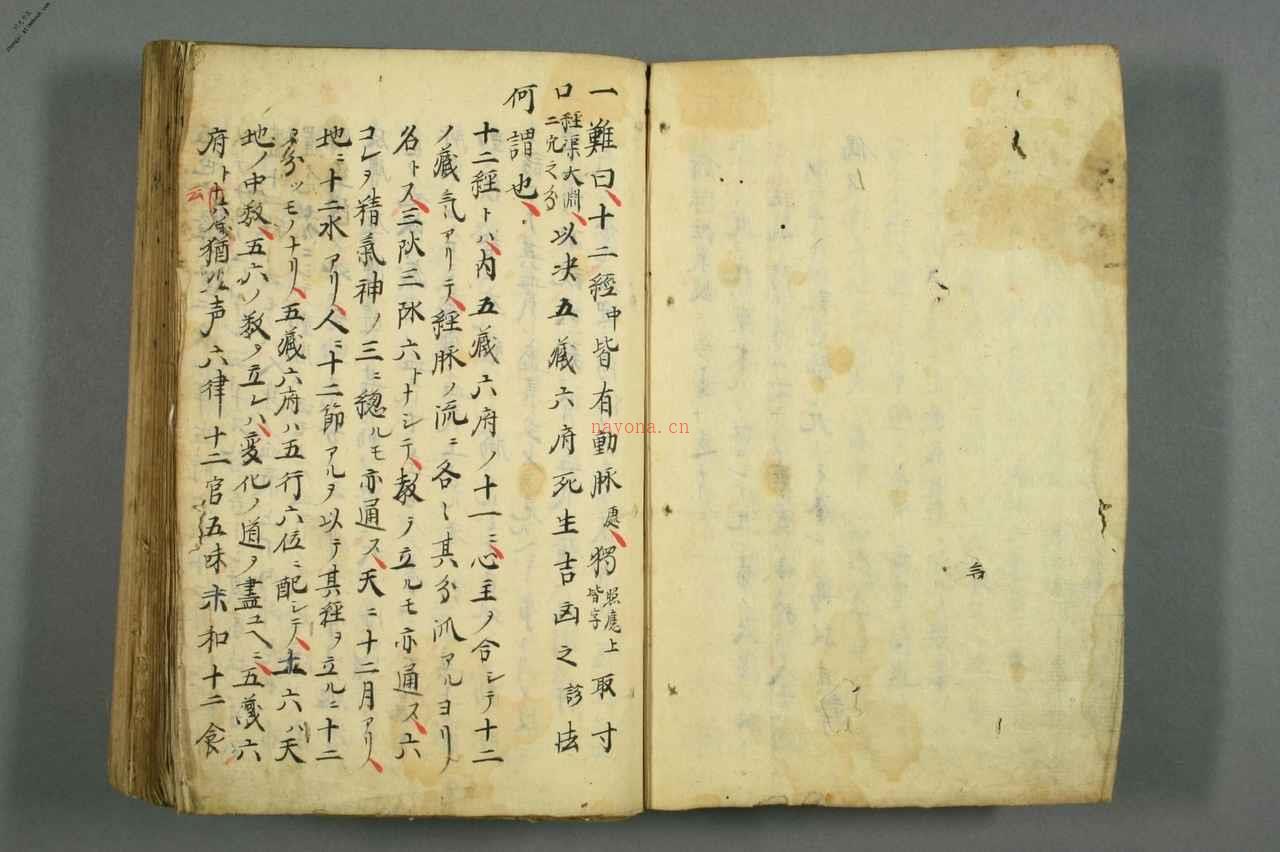 一難曰十二經中皆有動脉處獨照應上皆字取寸
口經渠大淵二穴之分以決五藏六府死生吉凶之診法
何謂也
十二經トハ内五藏六府ノ十一ニ心主ヲ合シテ十二
ノ藏氣アリテ經脉ノ流ニ各〻其分派アルヨリ
名トス三陰三陽六トナシテ教ヲ立ルモ亦通ス六
コレヲ精氣神ノ三ニ總ルモ亦通ス天ニ十二月アリ
地ニ十二水アリ人ニ十二節アルヲ以テ其經ヲ立ルニ十二
ヲ分ツモノナリ五藏六府ハ五行六位ニ配シテ五六ハ天
地ノ中数五六ノ数ヲ立レハ変化ノ道ヲ盡ユヘニ五藏六
府ト云猶五声六律十二官五味六和十二食
nayona.cn